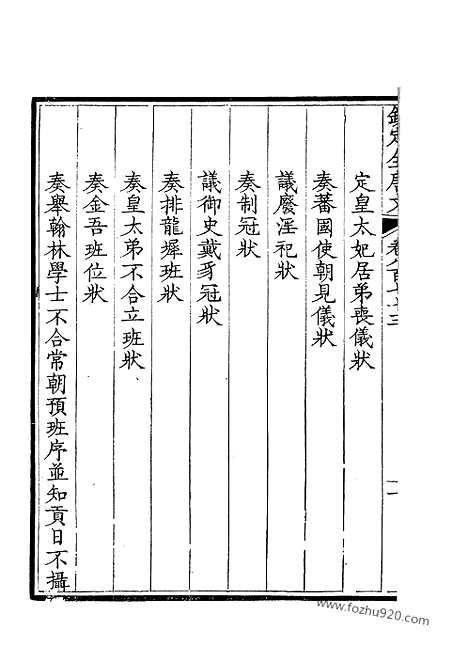 定皇太妃居弟喪儀狀
奏蕃國使朝見儀狀
議廢淫祀狀
奏制冠狀
議御史戴豸冠狀
奏排龍墀班狀
奏皇太弟不合立班狀
奏金吾班位狀
奏舉翰林學士不合常朝預班序並知貢日不攝
www.fozhu920.com